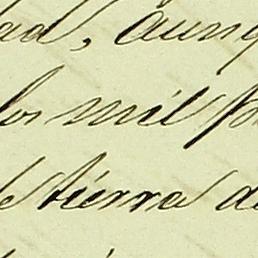 ad, aunq
los mil p
tierra de